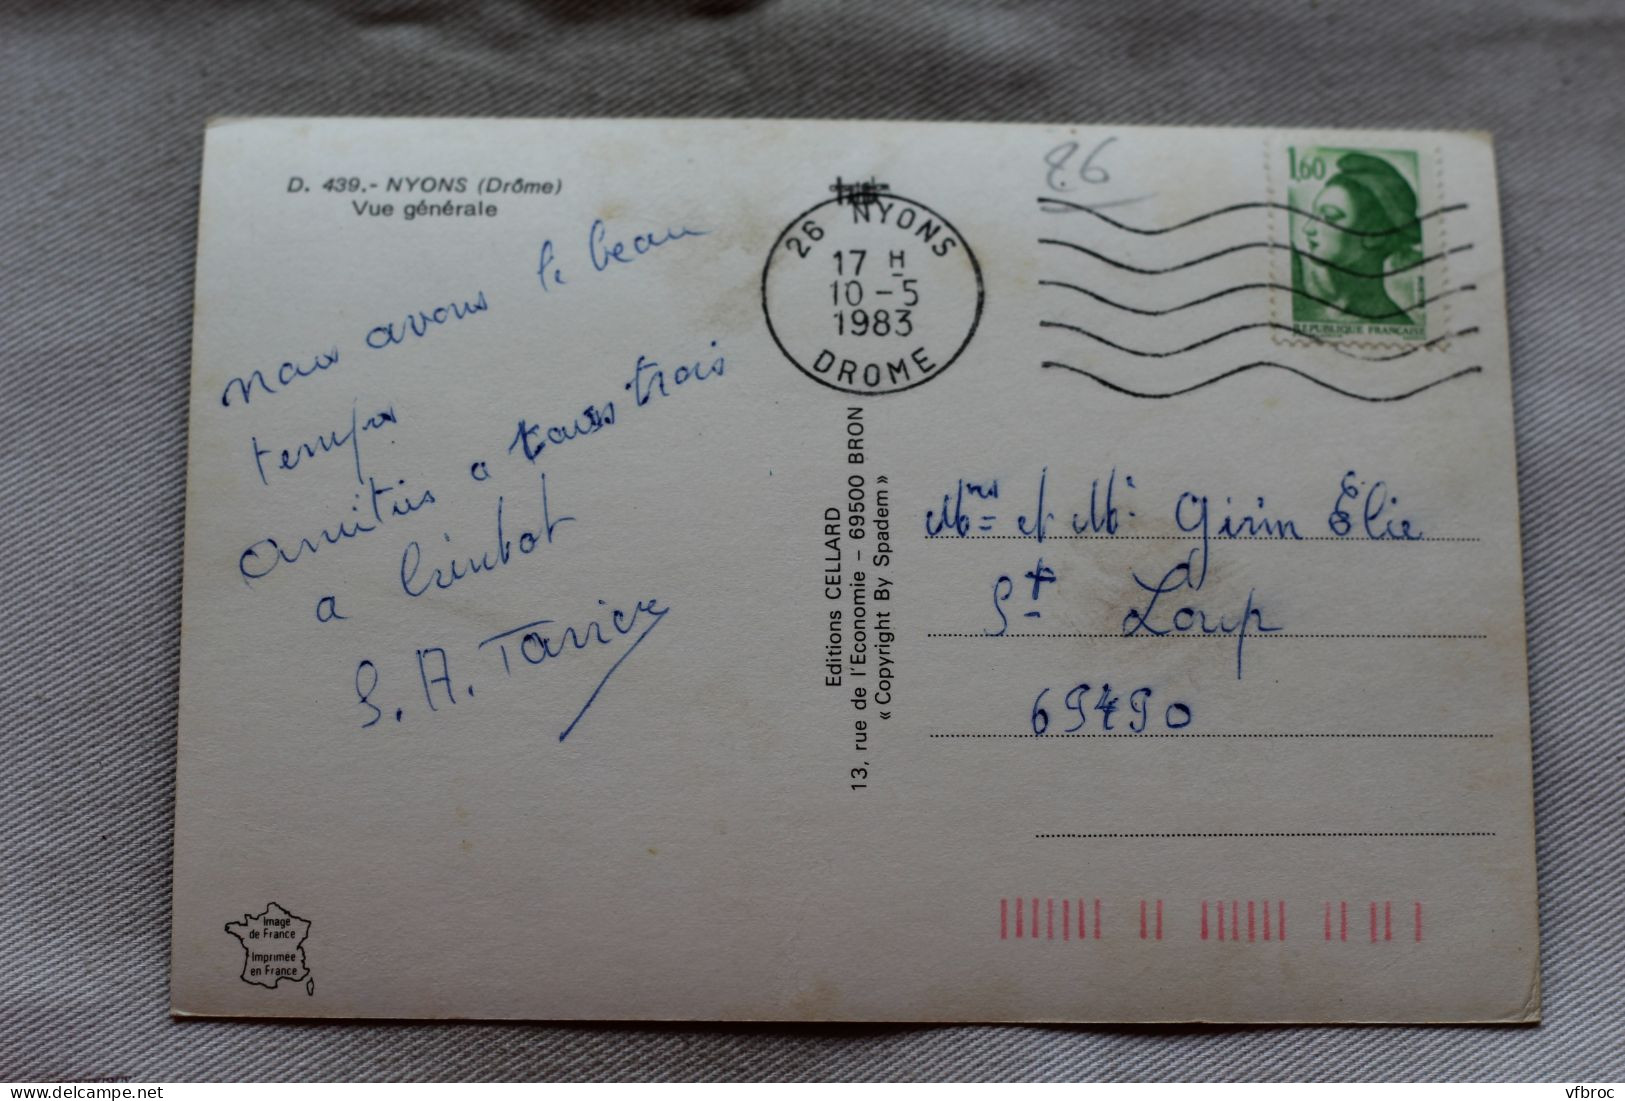 D. 439.- NYONS (Drôme)
Vue générale
nous avons le beau
temps
amitiés a tous trois
a
S. A. Tavier
26 NYONS
17 H
10 - 5
1983
DROME
86
1,60
REPUBLIQUE FRANÇAISE
Editions CELLARD
13, rue de l'Economie - 69500 BRON
« Copyright By Spadem »
Mrs et Mr Girin Élie
St Loup
69490
Image
de France
Imprimée
en France
delcampe.net
vfbroc